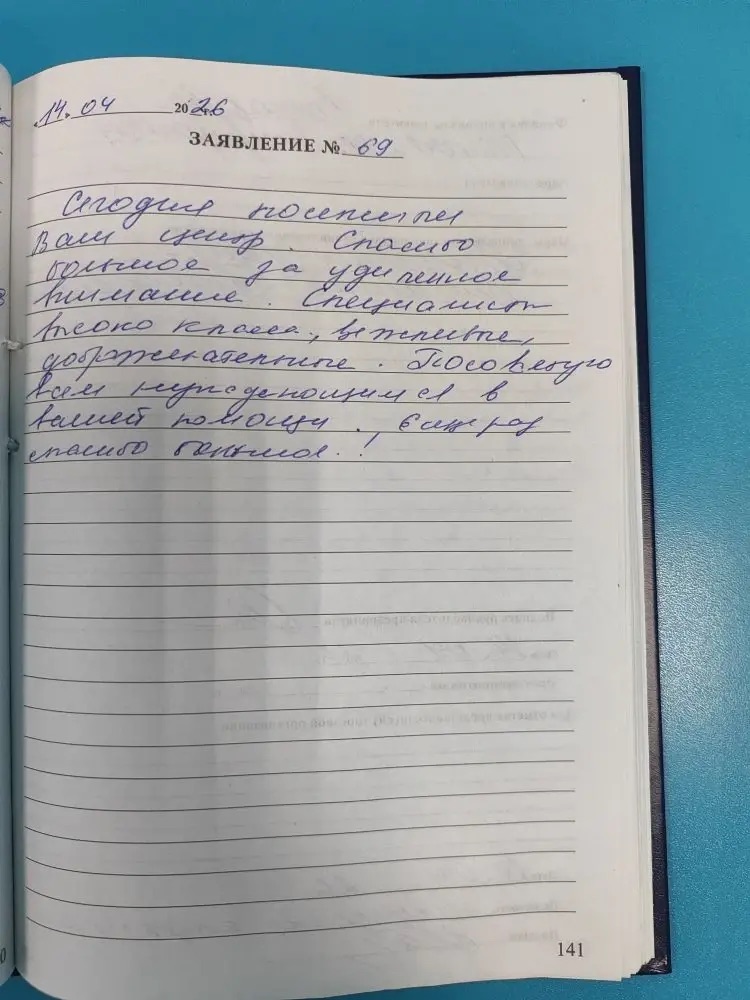 "14" 04 2026 г.
ЗАЯВЛЕНИЕ № 69
Сегодня посетили
Ваш центр. Спасибо
большое за уделенное
внимание. Специалисты
высоко класса, вежливые,
доброжелательные. Посоветую
всем нуждающимся в
вашей помощи. Еще раз
спасибо большое!
141